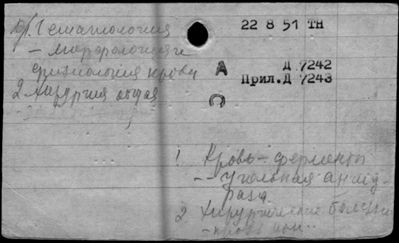 1) Гематология
22 8 51 ТН
- морфология и
физиология крови
А
Д 7242
Прил.Д 7243
2 Хирургия общая
1 Кровь - ферменты
-- угольная ангид-
раза
2 Хирургические болезни
- кровь при..